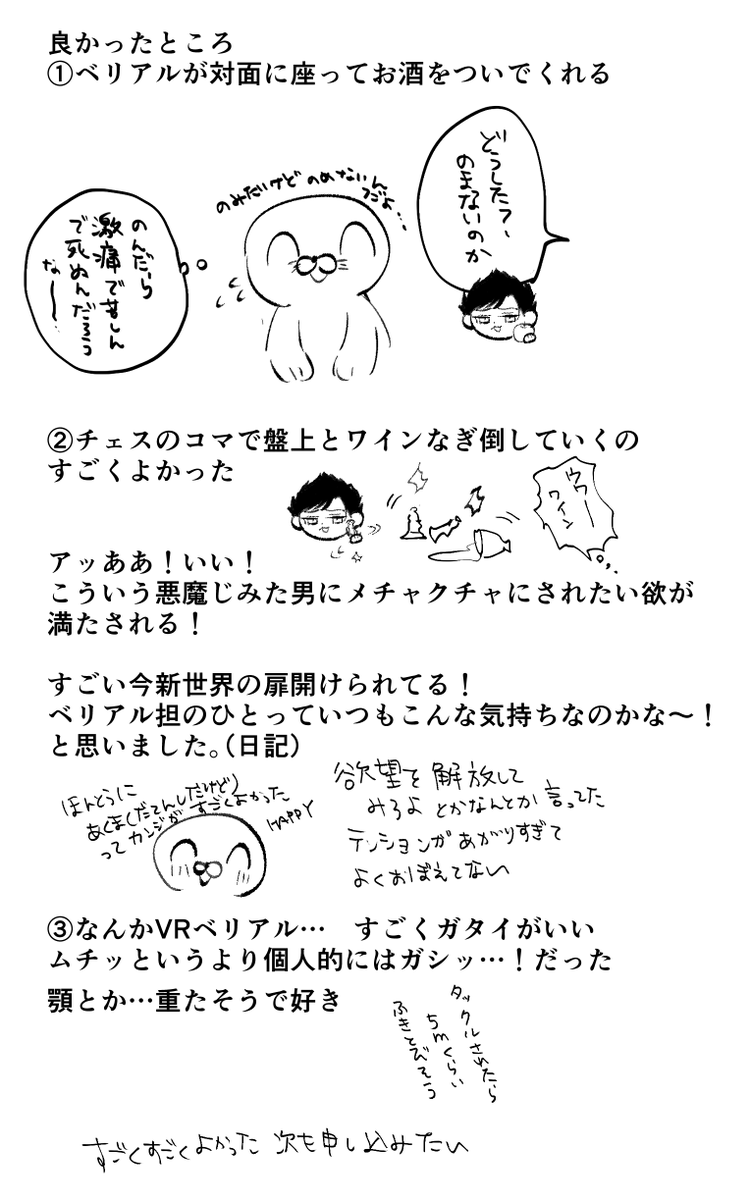 良かったところ
①ベリアルが対面に座ってお酒をついでくれる
どうした？、
のまないのか
のみたいけど のめないん
だよ…
のんだら
激痛で苦しん
で死ぬんだろう
なー〜
②チェスのコマで盤上とワインなぎ倒していくの
すごくよかった
ウワー
ワイン
アッああ！いい！
こういう悪魔じみた男にメチャクチャにされたい欲が
満たされる！
すごい今新世界の扉開けられてる！
ベリアル担のひとっていつもこんな気持ちなのかな〜！
と思いました。（日記）
ほんとうに
あくま(だてんしだけど)
ってカンジが すごくよかった
HAPPY
欲望を解放して
みろよ とかなんとか 言ってた
テンションが あがりすぎて
よくおぼえてない
③なんかVRベリアル…　すごくガタイがいい
ムチッというより個人的にはガシッ…！だった
顎とか…重たそうで好き
タックルされたら
5mくらい
ふきとびそう
すごくすごくよかった 次も申し込みたい